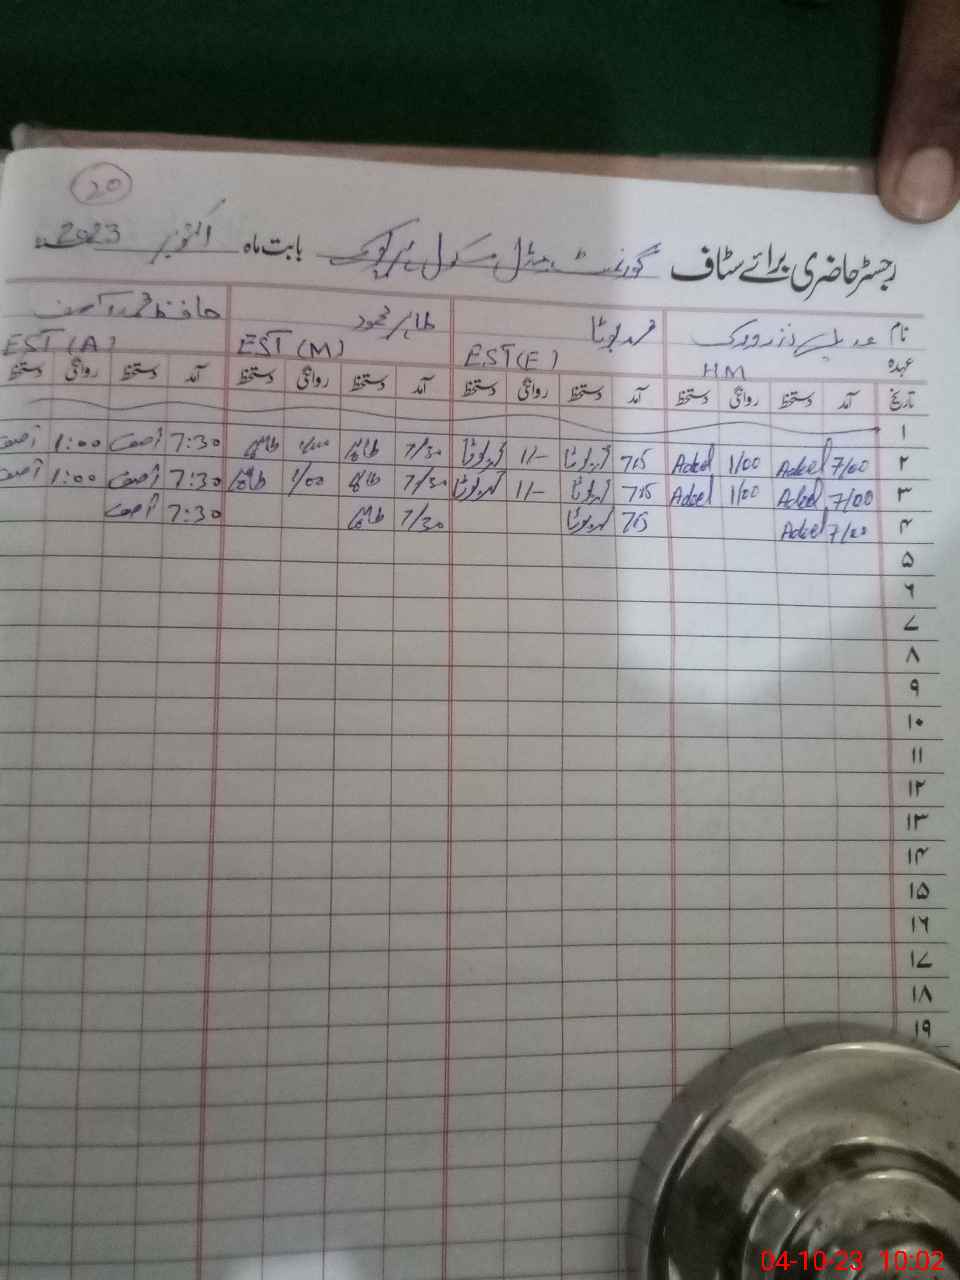 20
رجسٹر حاضری برائے سٹاف گورنمنٹ مڈل سکول بابت ماہ اکتوبر 2023
نام محمد بوٹا طاہر محمود حافظ محمد آصف
عہدہ HM EST(E) EST(M) EST(A)
تاریخ آمد دستخط روانگی دستخط آمد دستخط روانگی دستخط آمد دستخط روانگی دستخط آمد دستخط روانگی دستخط
۱
۲ 7/00 Adeel 1/00 Adeel 715 محمد بوٹا 1/- محمد بوٹا 7/30 طاہر 1/00 طاہر 7:30 آصف 1:00 آصف
۳ 7/00 Adeel 1/00 Adeel 715 محمد بوٹا 1/- محمد بوٹا 7/30 طاہر 1/00 طاہر 7:30 آصف 1:00 آصف
۴ 7/00 Adeel 715 محمد بوٹا 7/30 طاہر 7:30 آصف
۵
۶
۷
۸
۹
۱۰
۱۱
۱۲
۱۳
۱۴
۱۵
۱۶
۱۷
۱۸
۱۹
04-10-23 10:02